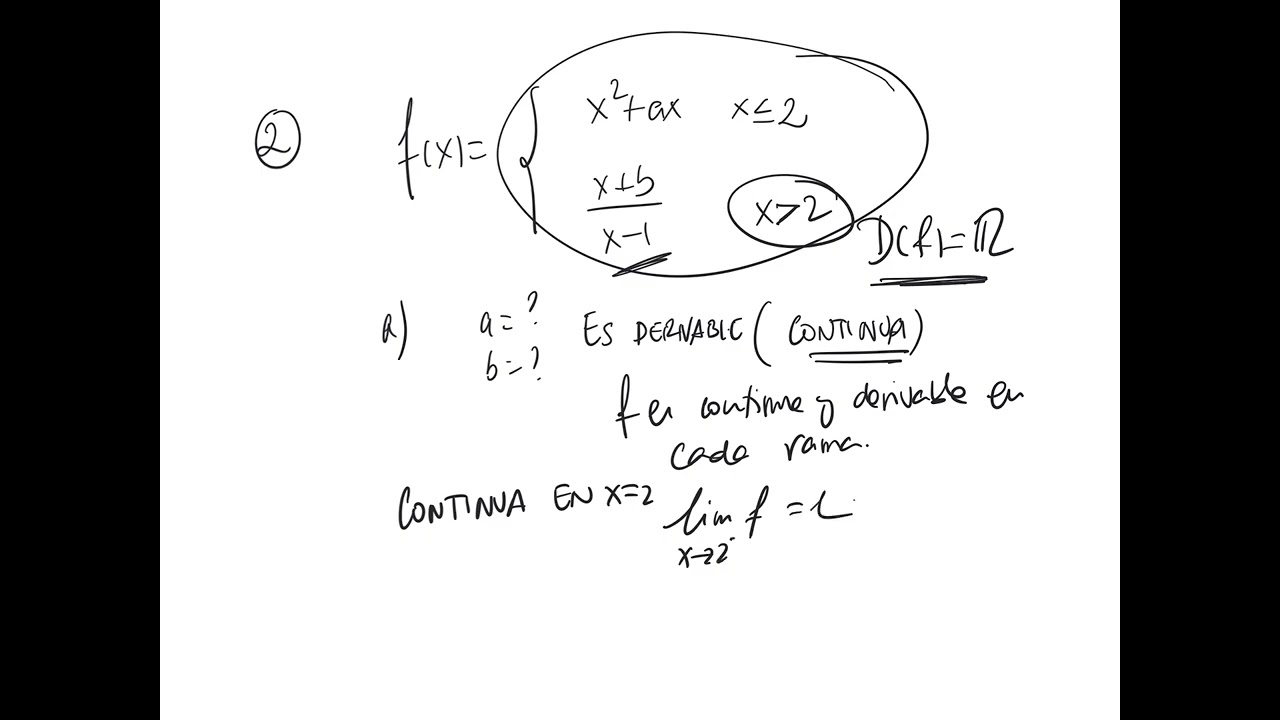 ② f(x)= { x²+ax x≤2
x+b / x-1 x>2
D(f)=ℝ
a) a=? ES DERIVABLE (CONTINUA)
b=?
f es continua y derivable en
cada rama.
CONTINUA EN x=2 lim f = L
x→2⁻